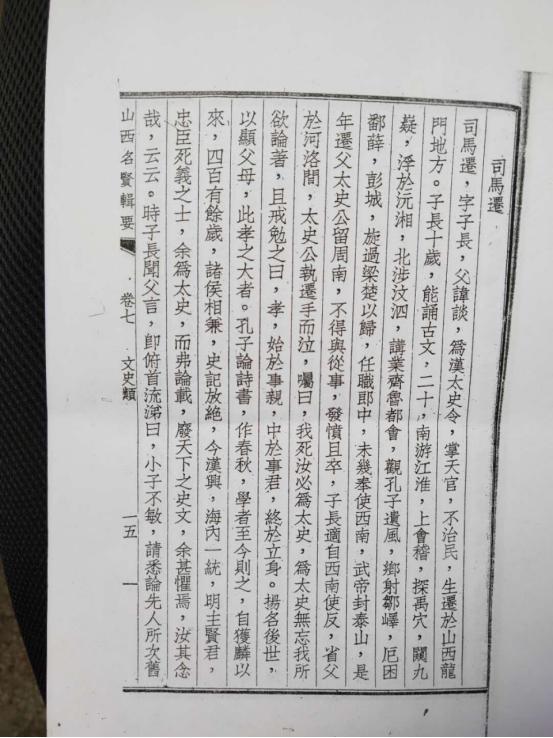 司馬遷
司馬遷，字子長，父諱談，為漢太史令，掌天官，不治民，生遷於山西龍
門地方。子長十歲，能誦古文，二十，南游江淮，上會稽，探禹穴，闚九
嶷，浮於沅湘，北涉汶泗，講業齊魯都會，觀孔子遺風，鄉射鄒嶧，厄困
鄱薛，彭城，旋過梁楚以歸，任職郎中，未幾奉使西南，武帝封泰山，是
年遷父太史公留周南，不得與從事，發憤且卒，子長適自西南使反，省父
於河洛間，太史公執遷手而泣，囑曰，我死汝必為太史，為太史無忘我所
欲論著，且戒勉之曰，孝，始於事親，中於事君，終於立身。揚名後世，
以顯父母，此孝之大者。孔子論詩書，作春秋，學者至今則之，自獲麟以
來，四百有餘歲，諸侯相兼，史記放絕，今漢興，海內一統，明主賢君，
忠臣死義之士，余為太史，而弗論載，廢天下之史文，余甚懼焉，汝其念
哉，云云。時子長聞父言，卽俯首流涕曰，小子不敏，請悉論先人所次舊
山西名賢輯要　卷七　文史類　一五